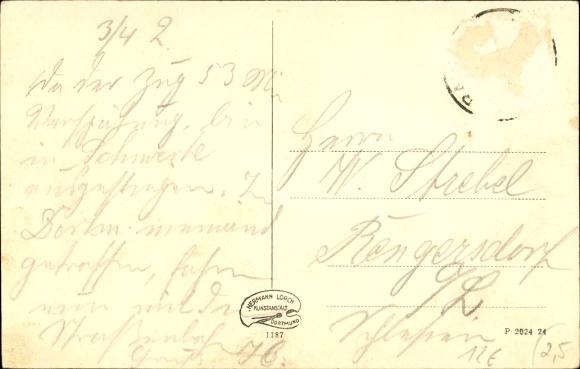 3/4 2.
Da der Zug 53 Min
Verspätung, bin
in Schwerte
ausgestiegen. In
Dortm. niemand
getroffen, fahre
nun mit der
Straßenbahn
Gruß
Herrn
W. Strebel
Rengersdorf
O/L.
Schlesien
HERMANN LORCH
KUNSTANSTALT
DORTMUND
1187
P 2024 24
12€
(2,5